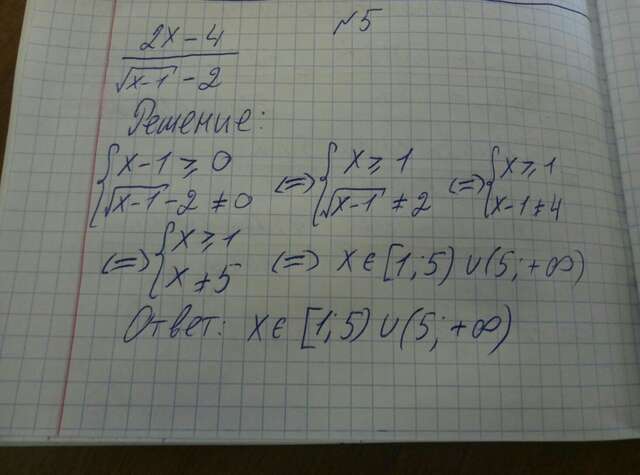 №5
2x-4
√x-1 -2
Решение:
{x-1≥0 √x-1 -2≠0 (=) {x≥1 √x-1≠2 (=) {x≥1 x-1≠4
(=) {x≥1 x≠5 (=) x∈[1;5)∪(5;+∞)
Ответ: x∈[1;5)∪(5;+∞)